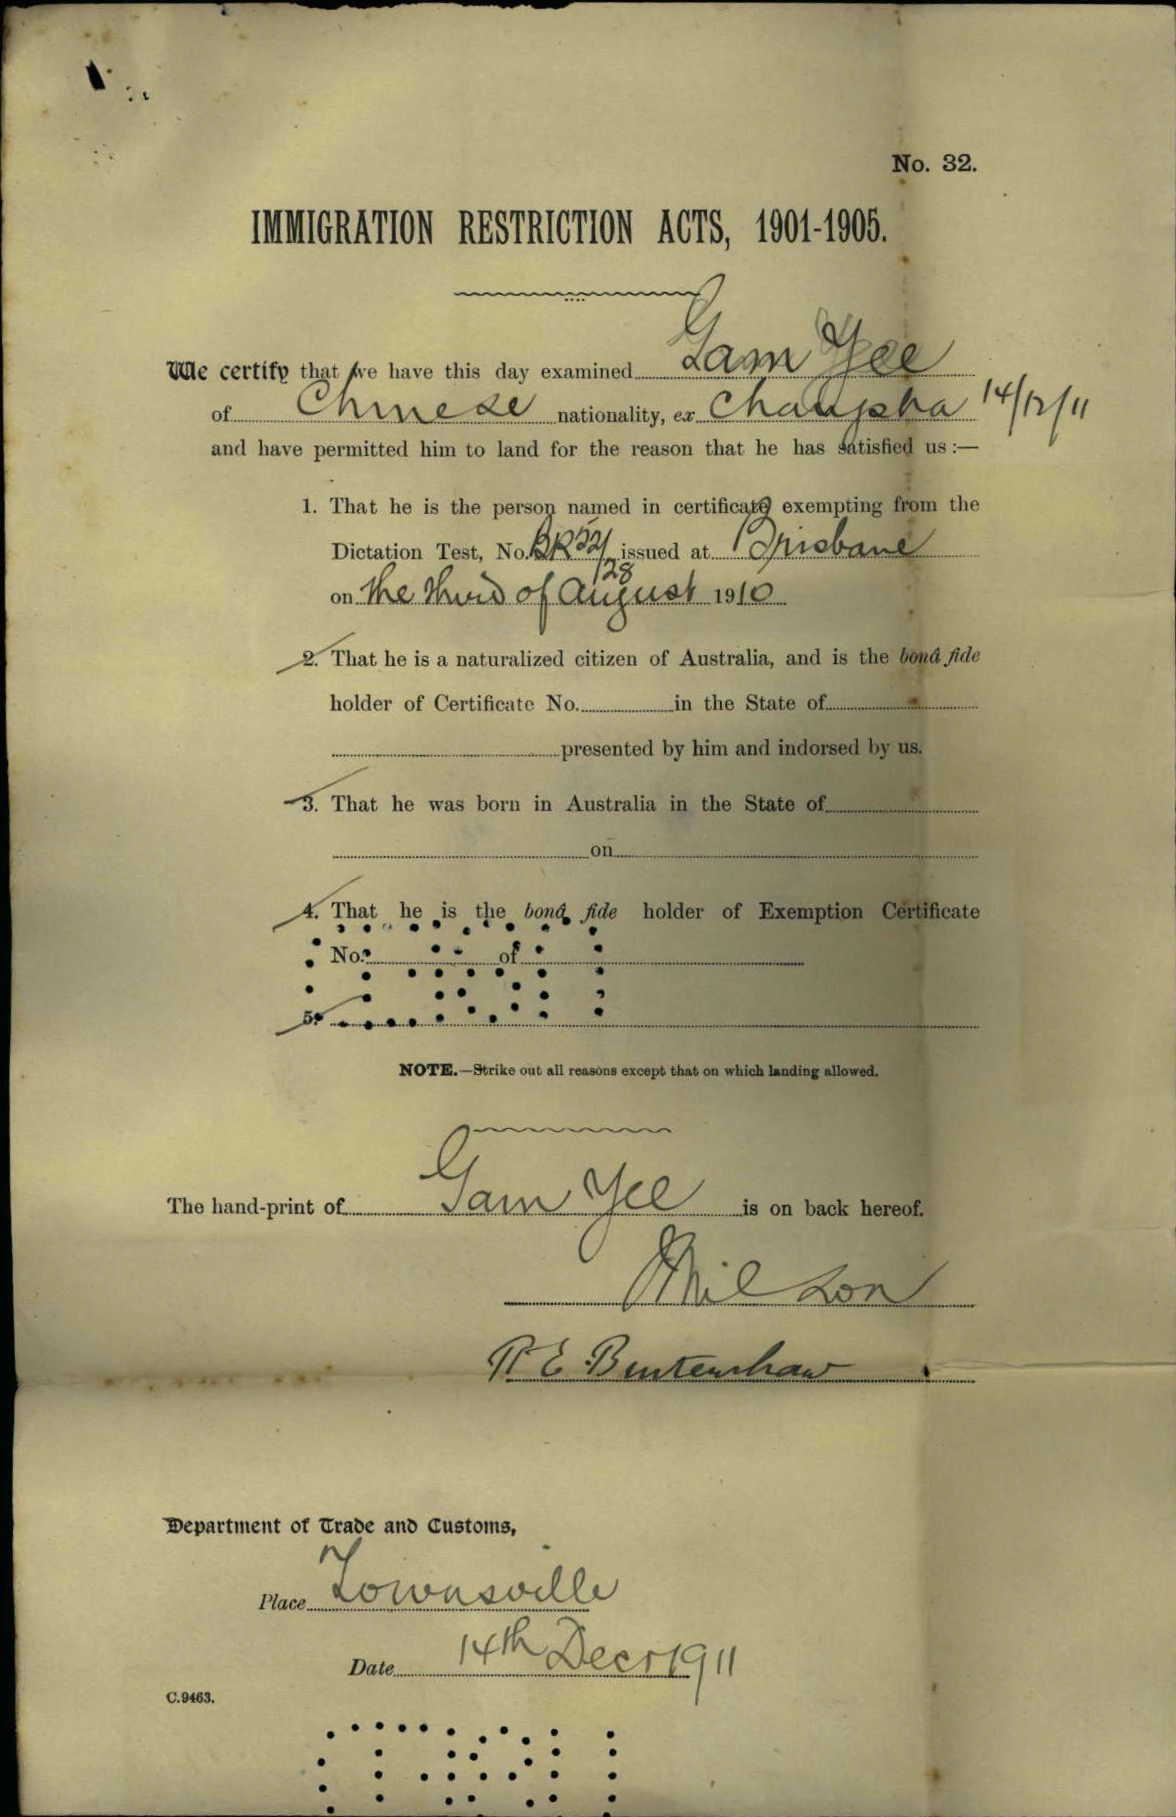 No. 32.
IMMIGRATION RESTRICTION ACTS, 1901-1905.
We certify that we have this day examined Gam Yee
of Chinese nationality, ex Changsha 14/12/11
and have permitted him to land for the reason that he has satisfied us :—
1. That he is the person named in certificate exempting from the
Dictation Test, No. issued at Brisbane
on the third of August 1910
2. That he is a naturalized citizen of Australia, and is the bonâ fide
holder of Certificate No. in the State of
presented by him and indorsed by us.
3. That he was born in Australia in the State of
on
4. That he is the bonâ fide holder of Exemption Certificate
No. of
5.
NOTE.—Strike out all reasons except that on which landing allowed.
The hand-print of Gam Yee is on back hereof.
Department of Trade and Customs,
Place Townsville
Date 14th Decr 1911
C.9463.